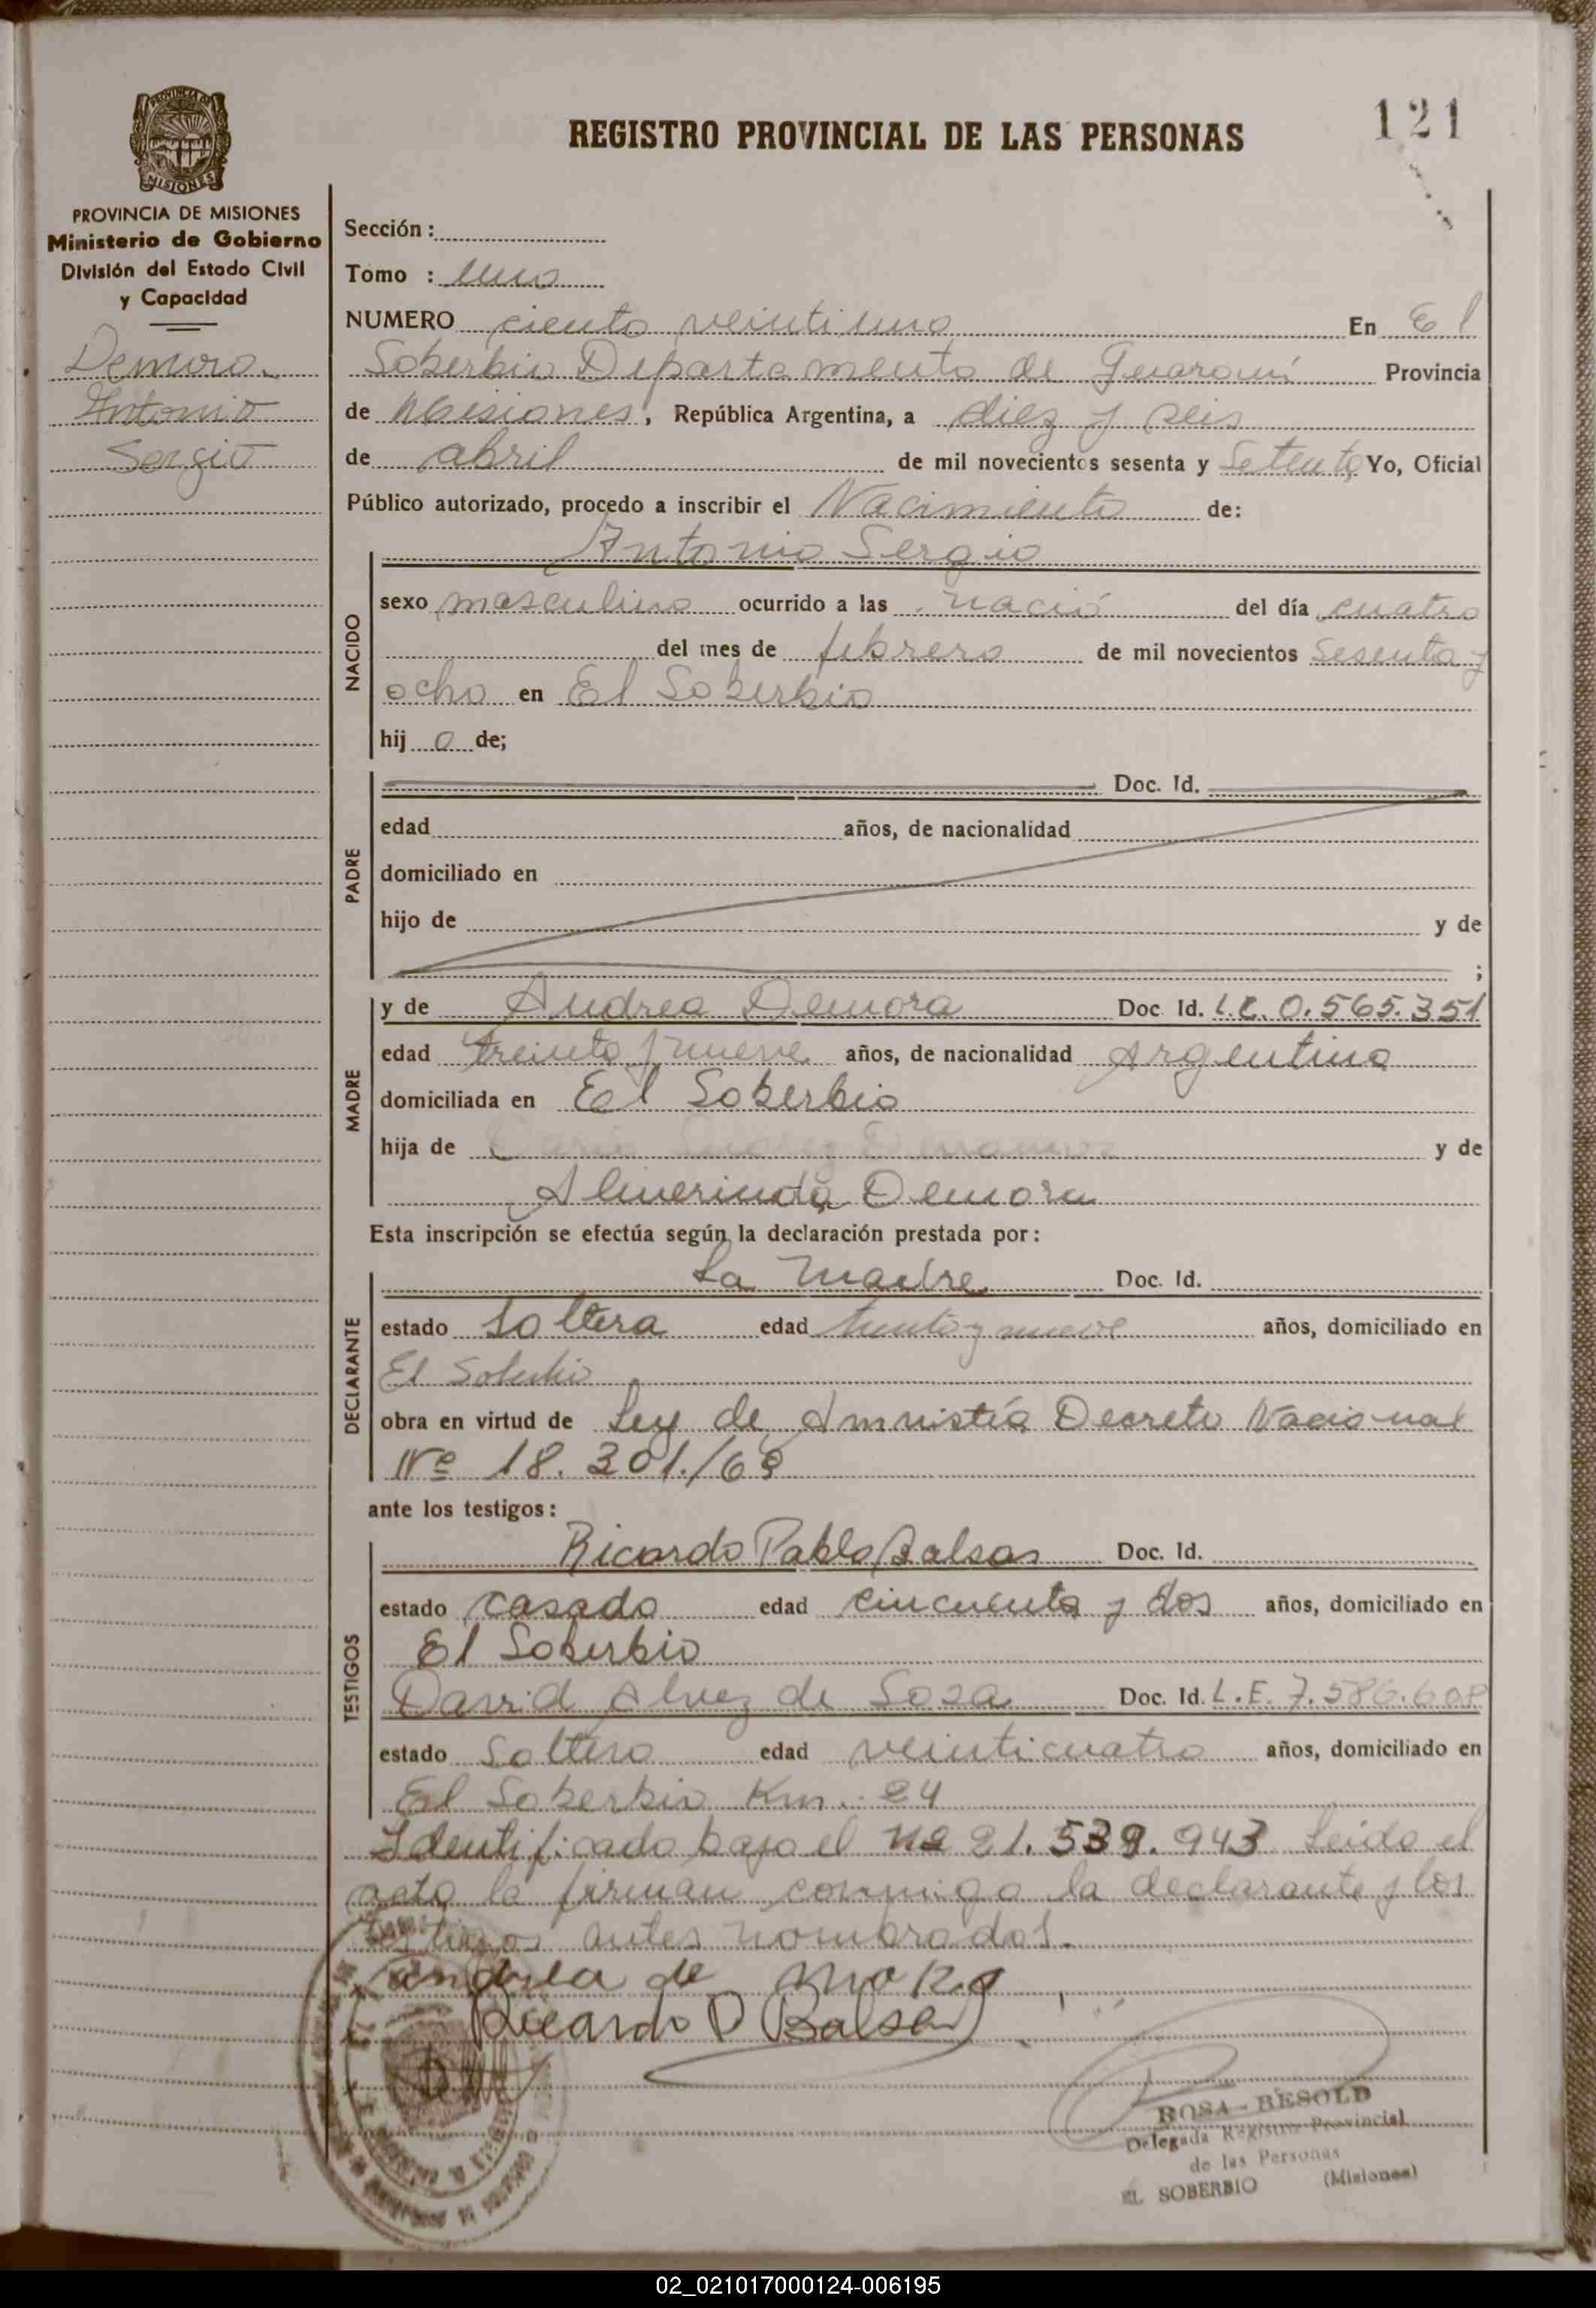 121
REGISTRO PROVINCIAL DE LAS PERSONAS
PROVINCIA DE
MISIONES
PROVINCIA DE MISIONES
Ministerio de Gobierno
División del Estado Civil
y Capacidad
Demora
Antonio
Sergio
Sección :
Tomo : uno
NUMERO ciento veintiuno En El
Soberbio Departamento de Guaraní Provincia
de Misiones, República Argentina, a diez y seis
de abril de mil novecientos sesenta y Setenta Yo, Oficial
Público autorizado, procedo a inscribir el Nacimiento de:
NACIDO
Antonio Sergio
sexo masculino ocurrido a las nació del día cuatro
del mes de febrero de mil novecientos Sesenta y
ocho en El Soberbio
hij o de;
PADRE
Doc. Id.
edad años, de nacionalidad
domiciliado en
hijo de y de
;
MADRE
y de Andrea Demora Doc. Id. L.C. 0.565.351
edad treinta y nueve años, de nacionalidad Argentina
domiciliada en El Soberbio
hija de y de
Almerinda Demora
Esta inscripción se efectúa según la declaración prestada por:
DECLARANTE
La Madre Doc. Id.
estado Soltera edad treinta y nueve años, domiciliado en
El Soberbio
obra en virtud de Ley de Amnistía Decreto Nacional
Nº 18.301./69
ante los testigos:
TESTIGOS
Ricardo Pablo Balsas Doc. Id.
estado casado edad cincuenta y dos años, domiciliado en
El Soberbio
David Alvez de Soza Doc. Id. L.E. 7.586.608
estado Soltero edad veinticuatro años, domiciliado en
El Soberbio Km. 24
Identificado bajo el Nº 21.539.943 Leida el
acta la firman conmigo la declarante y los
testigos antes nombrados.
andrea de mora
Ricardo P Balsa
ROSA - RESOLD
Delegada Registro Provincial
de las Personas
EL SOBERBIO (Misiones)
02_021017000124-006195